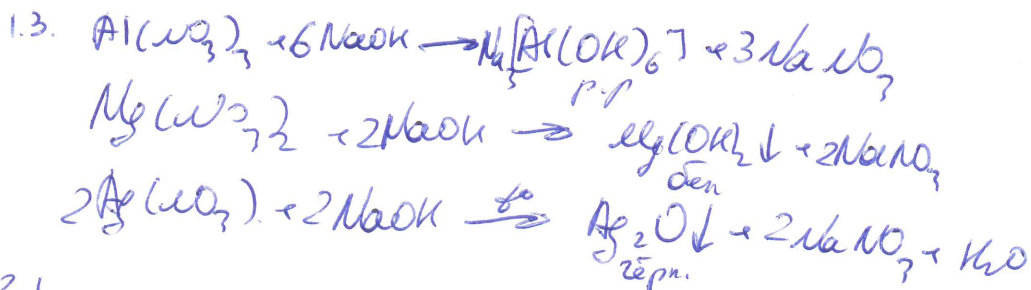 1.3. Al(NO₃)₃ + 6NaOH → Na₃[Al(OH)₆] + 3NaNO₃
р-р
Mg(NO₃)₂ + 2NaOH → Mg(OH)₂↓ + 2NaNO₃
бел
2Ag(NO₃) + 2NaOH →(t°) Ag₂O↓ + 2NaNO₃ + H₂O
чёрн.